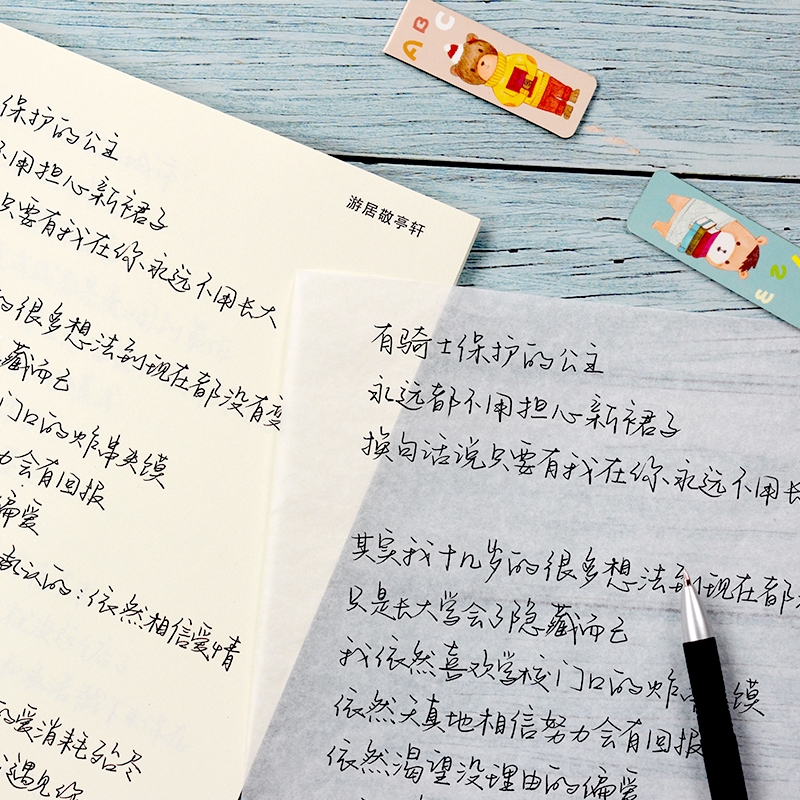 ABC
保护的公主
不用担心新裙子
只要有我在你永远不用长大
的很多想法到现在都没有变
藏而已
门口的炸串夹馍
力会有回报
偏爱
承认的：依然相信爱情
的爱消耗殆尽
遇见你
游居敬亭轩
有骑士保护的公主
永远都不用担心新裙子
换句话说只要有我在你永远不用长
其实我十几岁的很多想法到现在都
只是长大学会了隐藏而已
我依然喜欢学校门口的炸串夹馍
依然天真地相信努力会有回报
依然渴望没理由的偏爱